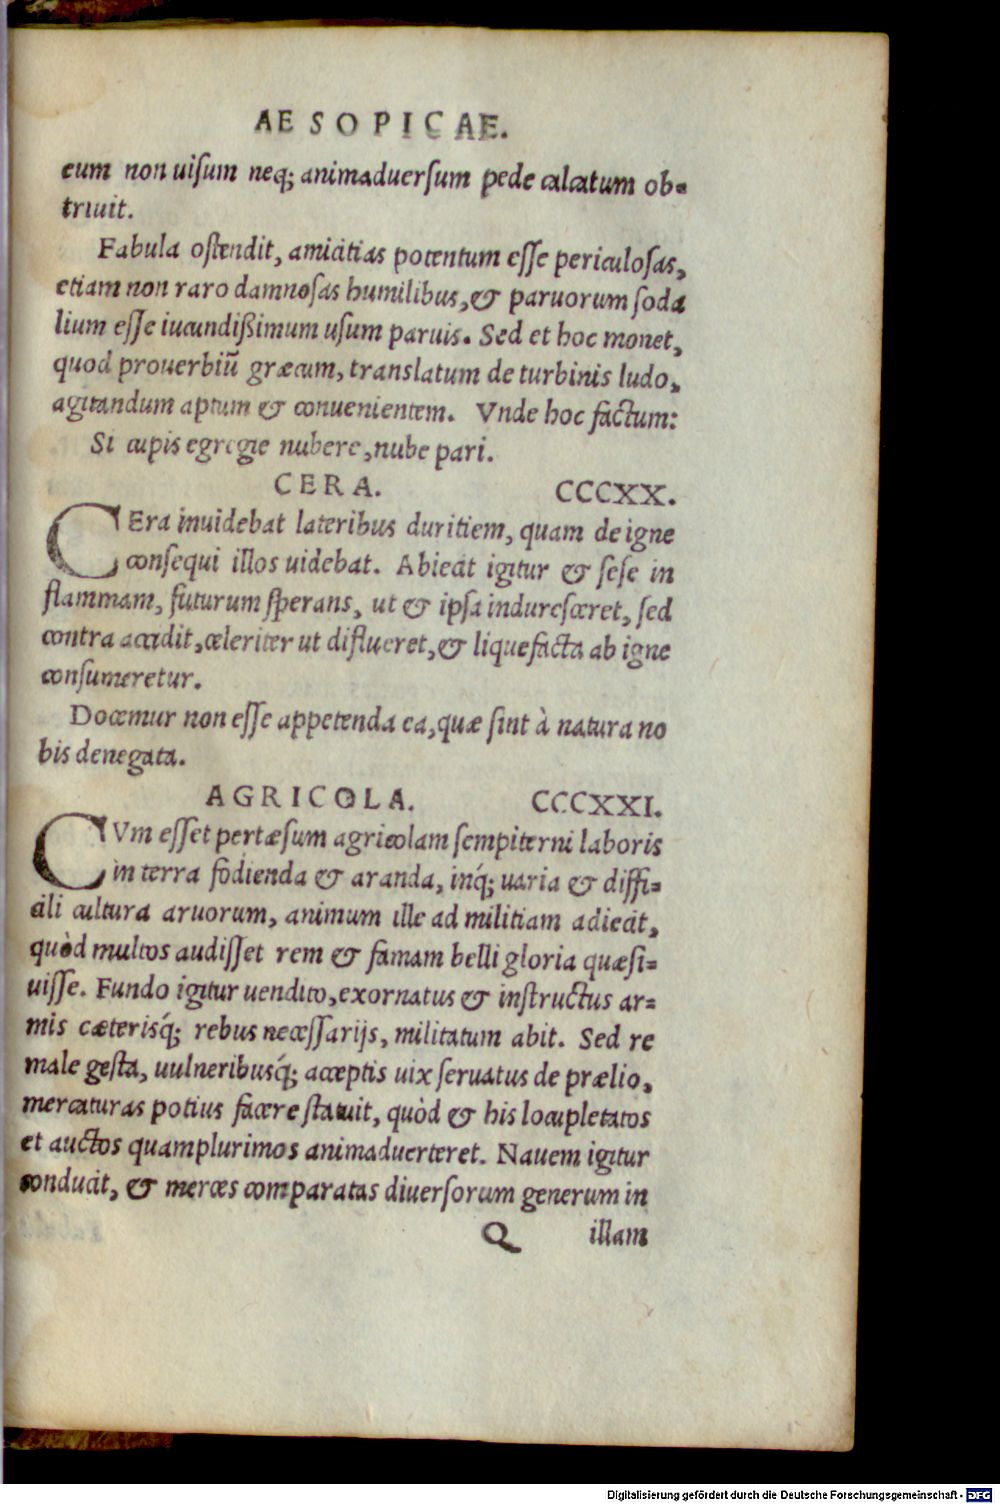 AESOPICAE.
eum non uiſum neq; animaduerſum pede calcatum ob-
triuit.
Fabula oſtendit, amicitias potentum eſſe periculoſas,
etiam non raro damnoſas humilibus, & paruorum ſoda
lium eſſe iucundißimum uſum paruis. Sed et hoc monet,
quod prouerbiũ græcum, translatum de turbinis ludo,
agitandum aptum & conuenientem. Vnde hoc factum:
Si cupis egregie nubere, nube pari.
CERA. CCCXX.
CEra inuidebat lateribus duritiem, quam de igne
conſequi illos uidebat. Abiecit igitur & ſeſe in
flammam, futurum ſperans, ut & ipſa indureſceret, ſed
contra accidit, celeriter ut diflueret, & liquefacta ab igne
conſumeretur.
Docemur non eſſe appetenda ea, quæ ſint à natura no
bis denegata.
AGRICOLA. CCCXXI.
CVm eſſet pertæſum agricolam ſempiterni laboris
in terra fodienda & aranda, inq́; uaria & diffi-
cili cultura aruorum, animum ille ad militiam adiecit,
quòd multos audiſſet rem & famam belli gloria quæſi-
uiſſe. Fundo igitur uendito, exornatus & inſtructus ar-
mis cæterisq́; rebus neceſſarijs, militatum abit. Sed re
male geſta, uulneribusq́; acceptis uix ſeruatus de prælio,
mercaturas potius facere ſtatuit, quòd & his locupletatos
et auctos quamplurimos animaduerteret. Nauem igitur
conducit, & merces comparatas diuerſorum generum in
Q illam
Digitalisierung gefördert durch die Deutsche Forschungsgemeinschaft - DFG